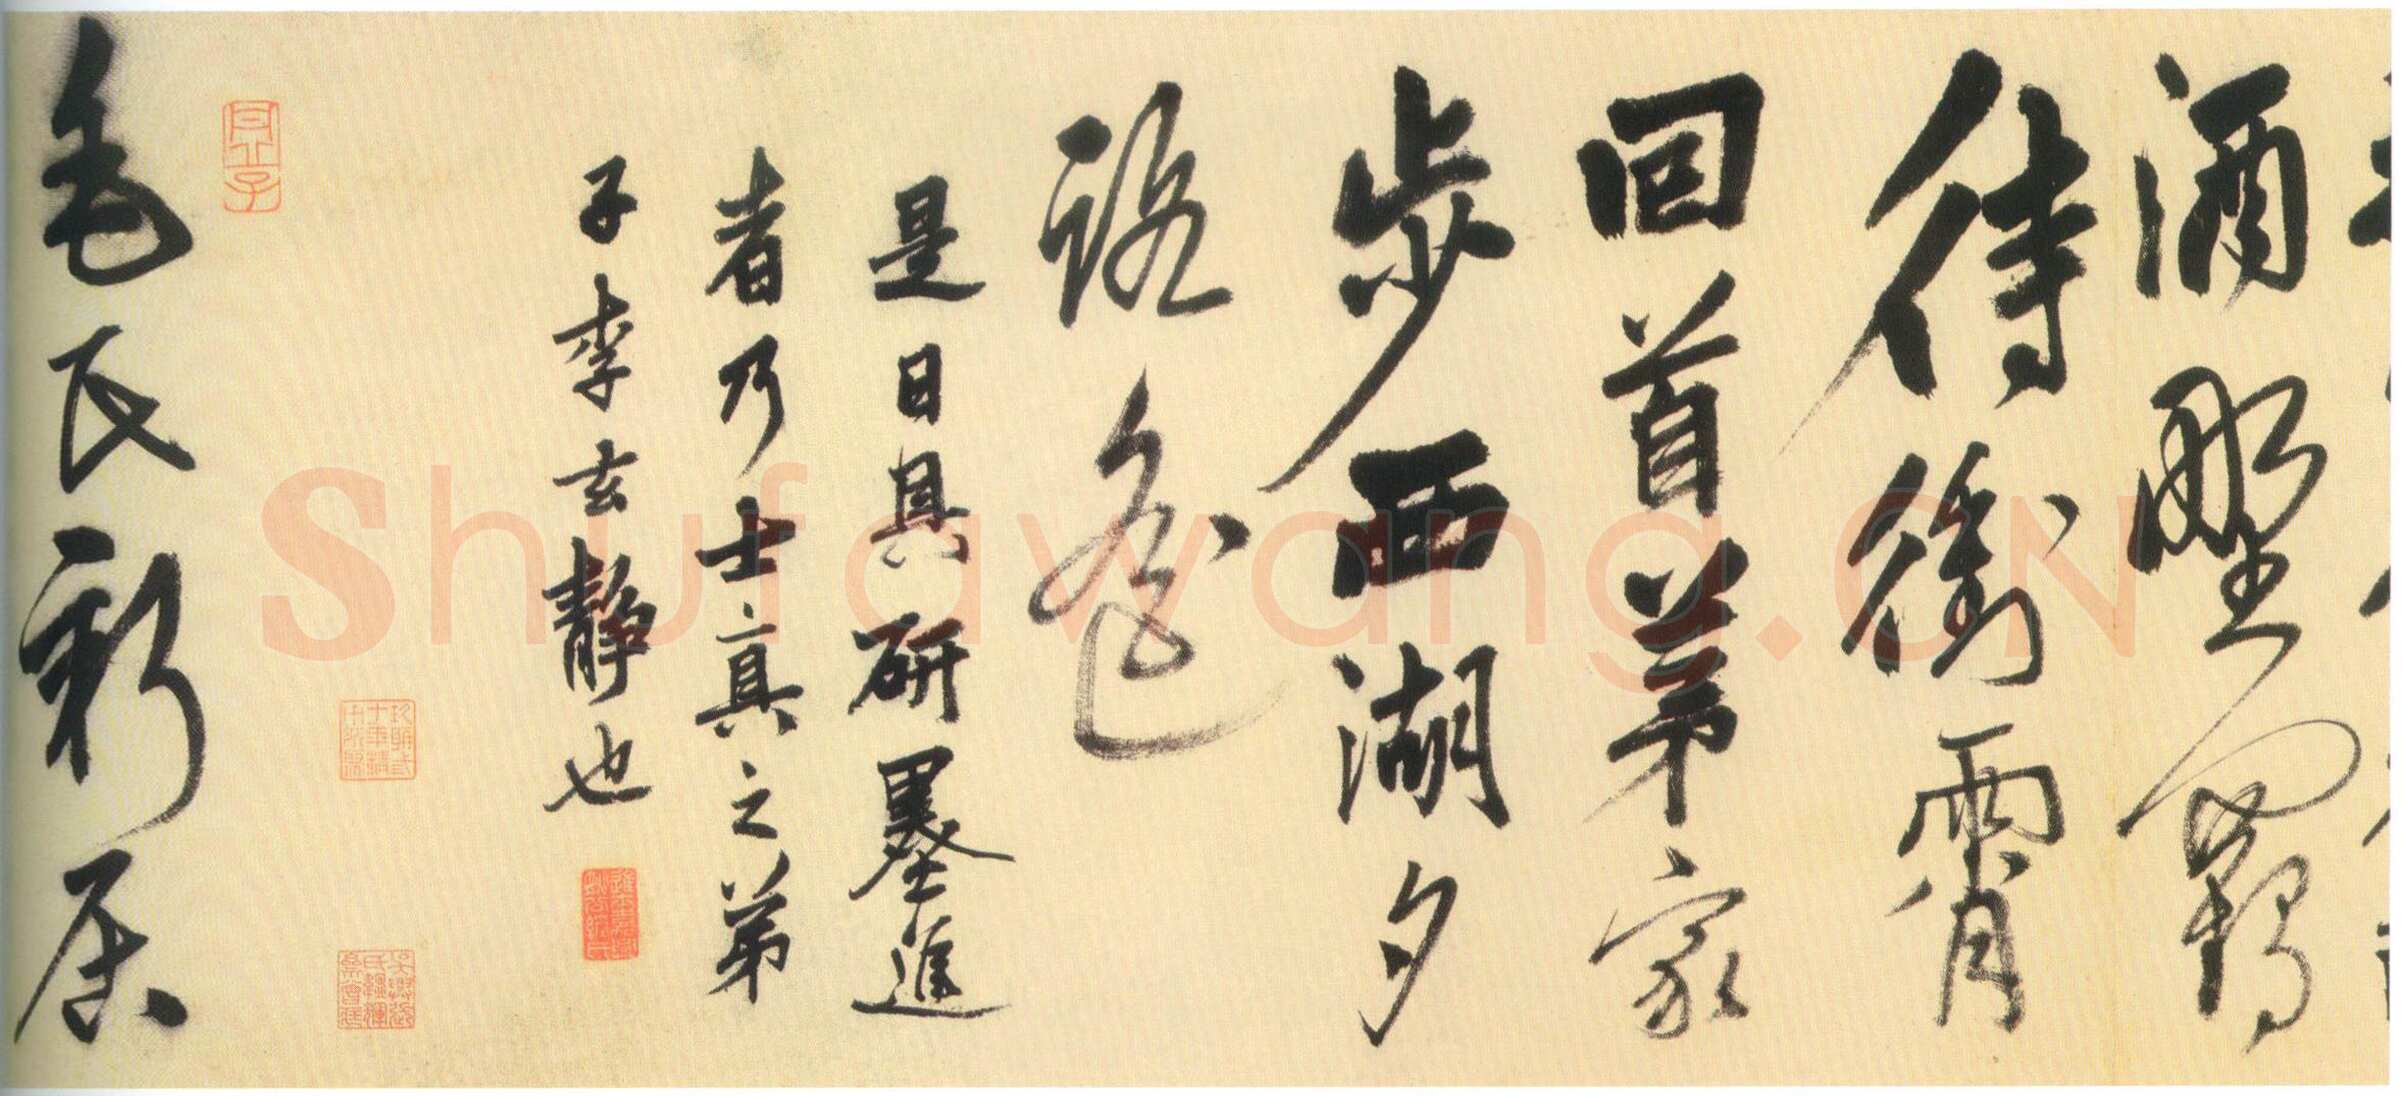 酒野鶴
待衝霄
回首第家
步西湖夕
路遙
是日具研墨進
者乃士真之弟
子李玄靜也
毛氏新居
Shufawang.CN